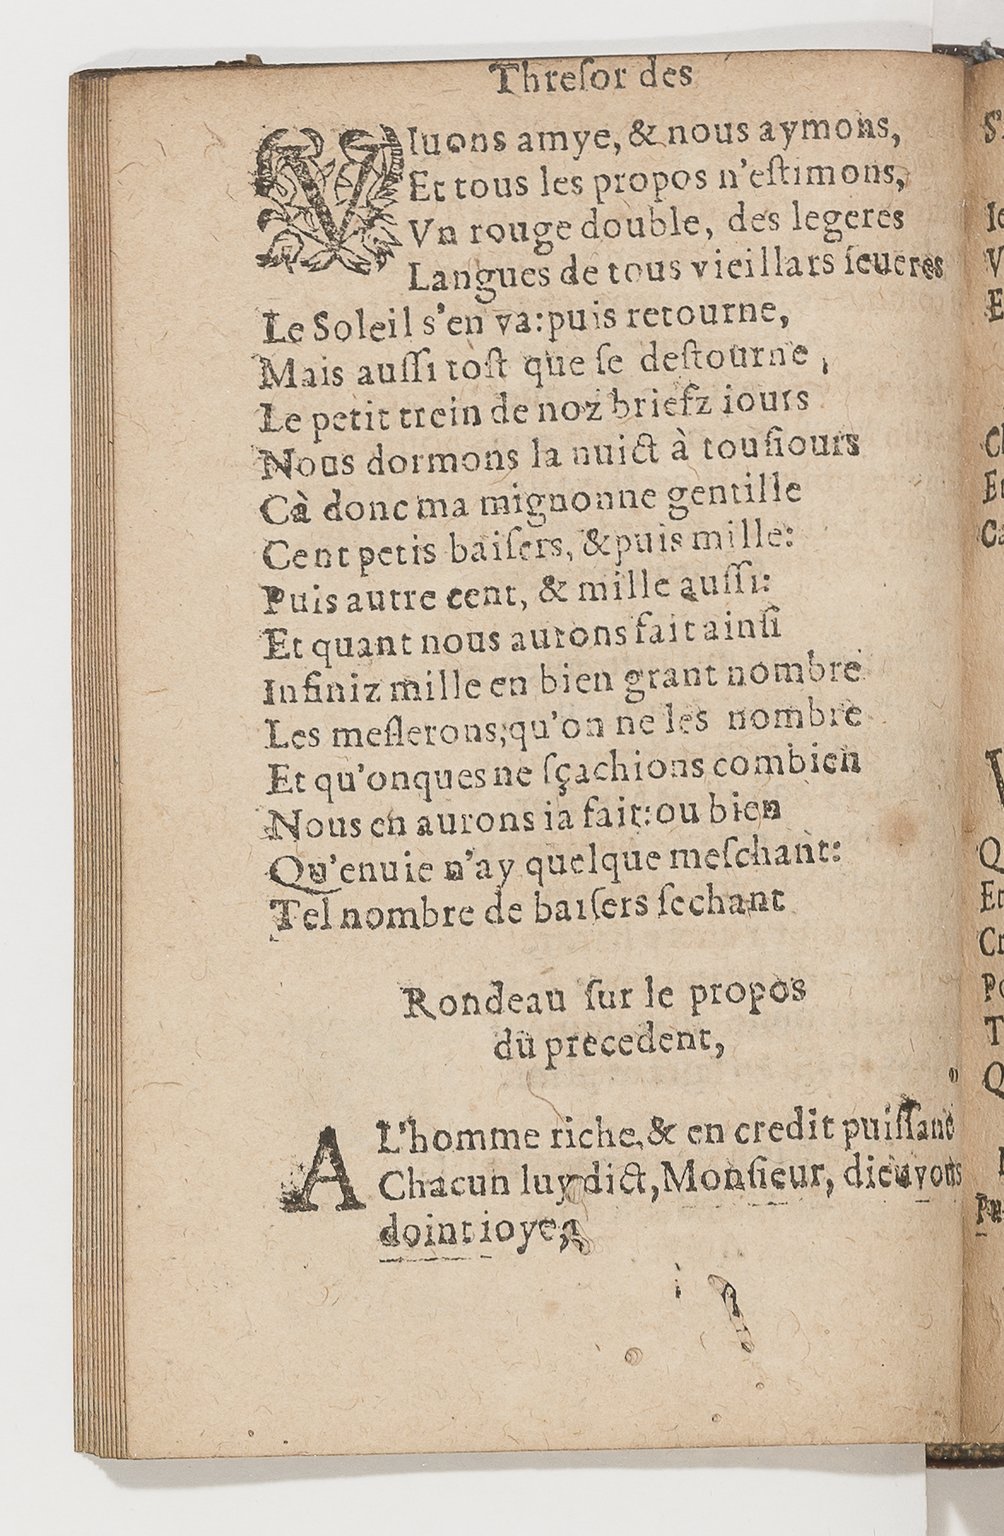 Threſor des
VIuons amye, & nous aymons,
Et tous les propos n'eſtimons,
Vn rouge double, des legeres
Langues de tous vieillars ſeueres
Le Soleil s'en va: puis retourne,
Mais auſſi toſt que ſe deſtourne,
Le petit trein de noz briefz iours
Nous dormons la nuict à touſiours
Cà donc ma mignonne gentille
Cent petis baiſers, & puis mille:
Puis autre cent, & mille auſſi:
Et quant nous aurons fait ainſi
Infiniz mille en bien grant nombre
Les meſlerons, qu'on ne les nombre
Et qu'onques ne ſçachions combien
Nous en aurons ia fait: ou bien
Qu'enuie n'ay quelque meſchant:
Tel nombre de baiſers ſechant
Rondeau ſur le propos
du precedent,
A L'homme riche, & en credit puiſſant
Chacun luy dict, Monſieur, dieu vous
doint ioye,